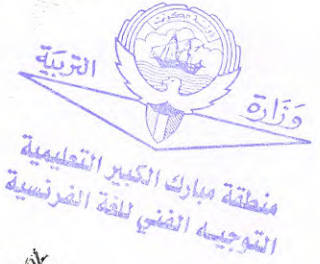 دولة الكويت
وزارة التربية
منطقة مبارك الكبير التعليمية
التوجيه الفني للغة الفرنسية